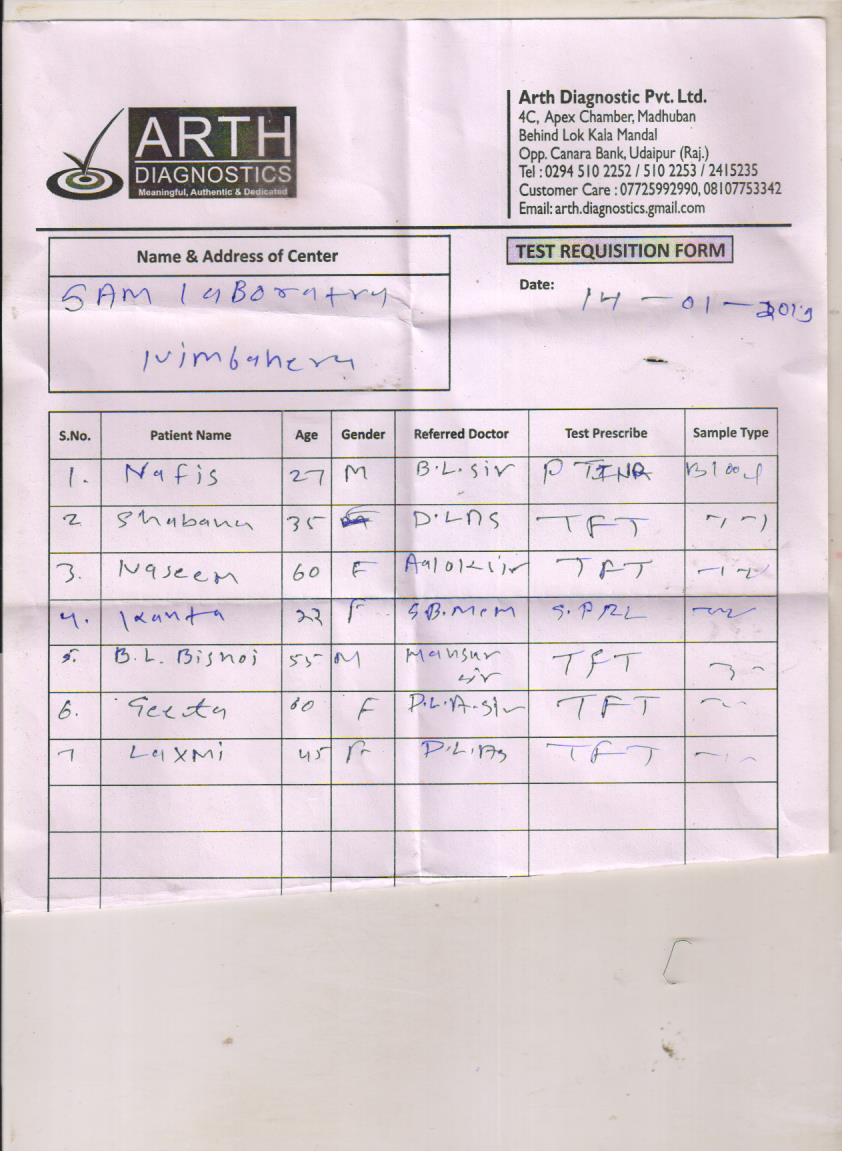 ARTH
DIAGNOSTICS
Meaningful, Authentic & Dedicated
Arth Diagnostic Pvt. Ltd.
4C, Apex Chamber, Madhuban
Behind Lok Kala Mandal
Opp. Canara Bank, Udaipur (Raj.)
Tel : 0294 510 2252 / 510 2253 / 2415235
Customer Care : 07725992990, 08107753342
Email: arth.diagnostics.gmail.com
Name & Address of Center
SAM laBoratry
Nimbahera
TEST REQUISITION FORM
Date: 14-01-2019
S.No. Patient Name Age Gender Referred Doctor Test Prescribe Sample Type
1. Nafis 27 M B.L.sir PTINR Blood
2 Shabana 35 D.L.AS TFT
3. Naseem 60 F Aaloksir TFT
4. Kanta 22 F S.PRL
5. B.L. Bisnoi 55 M Mansur sir TFT
6. Geeta 60 F D.L.A.sir TFT
7 Laxmi 45 F D.L.As TFT